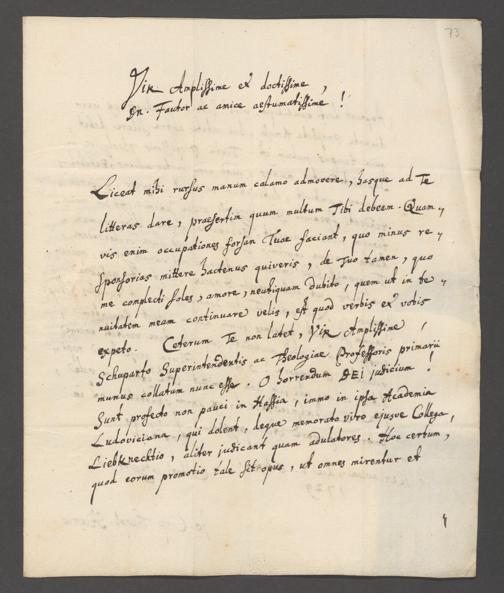 73
Vir Amplissime et doctissime,
Dn. Fautor ac amice aestumatissime!
Liceat mihi rursus manum calamo admovere, hasque ad Te
litteras dare, praesertim quum multum Tibi debeam. Quam-
vis enim occupationes forsan Tuae faciant, quo minus re-
sponsorias mittere hactenus quiveris, de Tuo tamen, quo
me complecti soles, amore, neutiquam dubito, quem ut in te-
nuitatem meam continuare velis, est quod verbis et votis
expeto. Ceterum Te non latet, Vir Amplissime,
Schuparto Superintendentis ac Theologiae Professoris primarii
munus collatum nunc esse. O horrendum DEI judicium!
Sunt profecto non pauci in Hassia, immo in ipsa Academia
Ludoviciana, qui dolent, deque memorato viro ejusve Collega,
Liebknechtio, aliter judicant quam adulatores. Hoc certum,
quod eorum promotio tale sit opus, ut omnes mirentur et